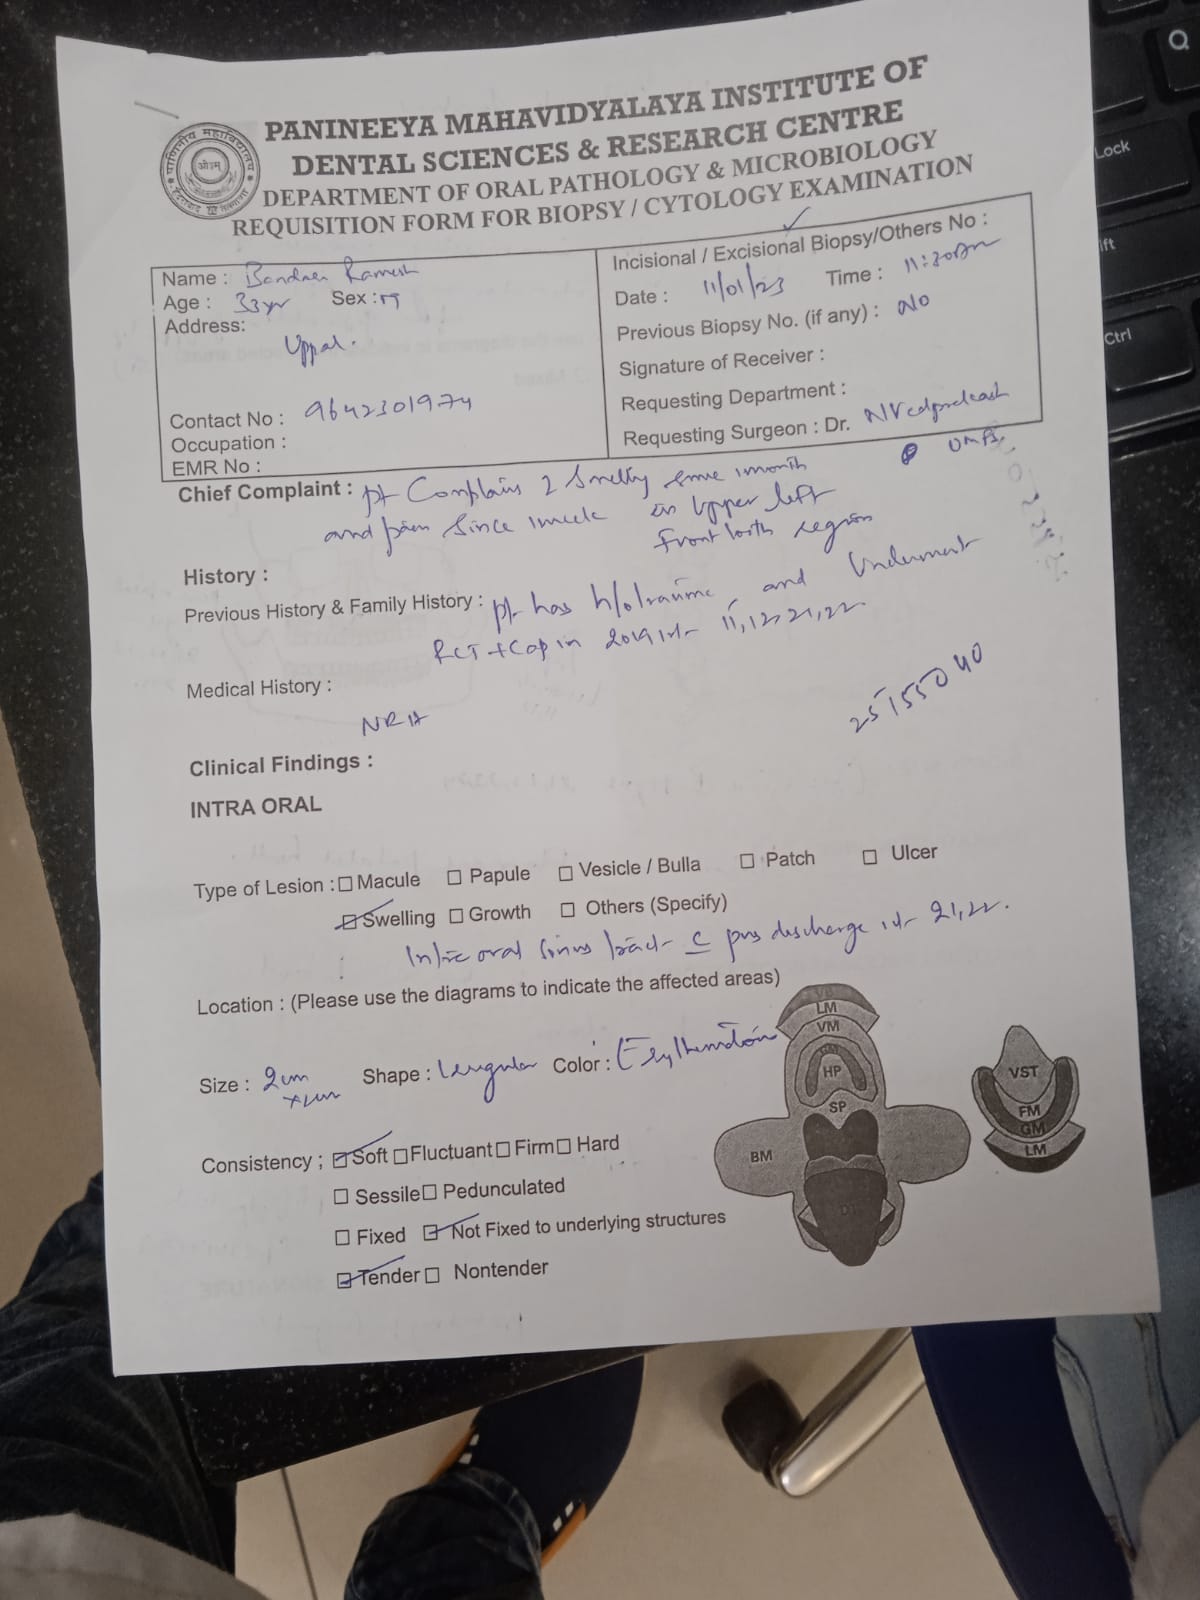 PANINEEYA MAHAVIDYALAYA INSTITUTE OF
DENTAL SCIENCES & RESEARCH CENTRE
DEPARTMENT OF ORAL PATHOLOGY & MICROBIOLOGY
REQUISITION FORM FOR BIOPSY / CYTOLOGY EXAMINATION
ओ३म्
Name : Ramesh
Age : 33yr Sex : M
Address:
Uppal.
Contact No : 9642301974
Occupation :
EMR No :
Incisional / Excisional Biopsy/Others No :
Date : 11/01/23 Time : 11:30am
Previous Biopsy No. (if any) : No
Signature of Receiver :
Requesting Department :
Requesting Surgeon : Dr.
Chief Complaint : pt Complains since 1 month
and pain since 1 week in upper left
front tooth region
History :
Previous History & Family History : pt has h/o trauma and Underwent
RCT + Cap in 2019 irt 11,12,21,22.
Medical History :
25155040
Clinical Findings :
INTRA ORAL
Type of Lesion : Macule Papule Vesicle / Bulla Patch Ulcer
Swelling Growth Others (Specify)
Intra oral sinus tract c pus discharge irt 21,22.
Location : (Please use the diagrams to indicate the affected areas)
LM
VM
HP
SP
BM
VST
FM
GM
LM
Size : 2cm Shape : Color :
Consistency ; Soft Fluctuant Firm Hard
Sessile Pedunculated
Fixed Not Fixed to underlying structures
Tender Nontender
Lock
Ctrl
Q